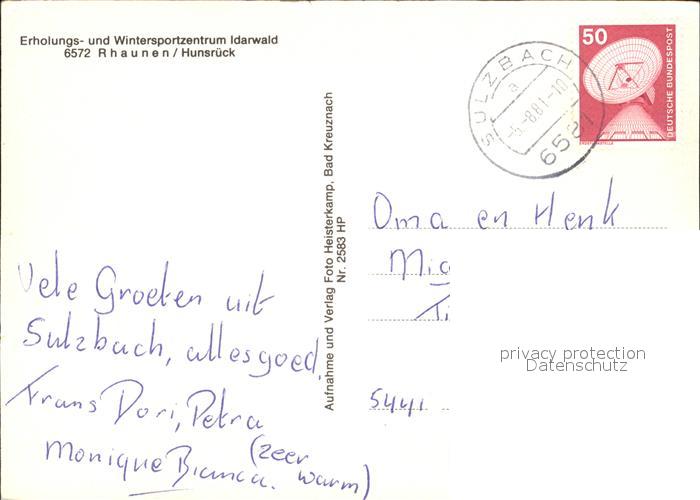 Erholungs- und Wintersportzentrum Idarwald
6572 Rhaunen / Hunsrück
50
DEUTSCHE BUNDESPOST
ERDEFUNKSTELLE
SULZBACH
a
-5.-8.81-10
6581
Aufnahme und Verlag Foto Heisterkamp, Bad Kreuznach
Nr. 2583 HP
Oma en Henk
Mig
Ti
5441
privacy protection
Datenschutz
Vele Groeten uit
Sulzbach, alles goed,
Frans Dori, Petra
Monique Bianca. (zeer
warm)